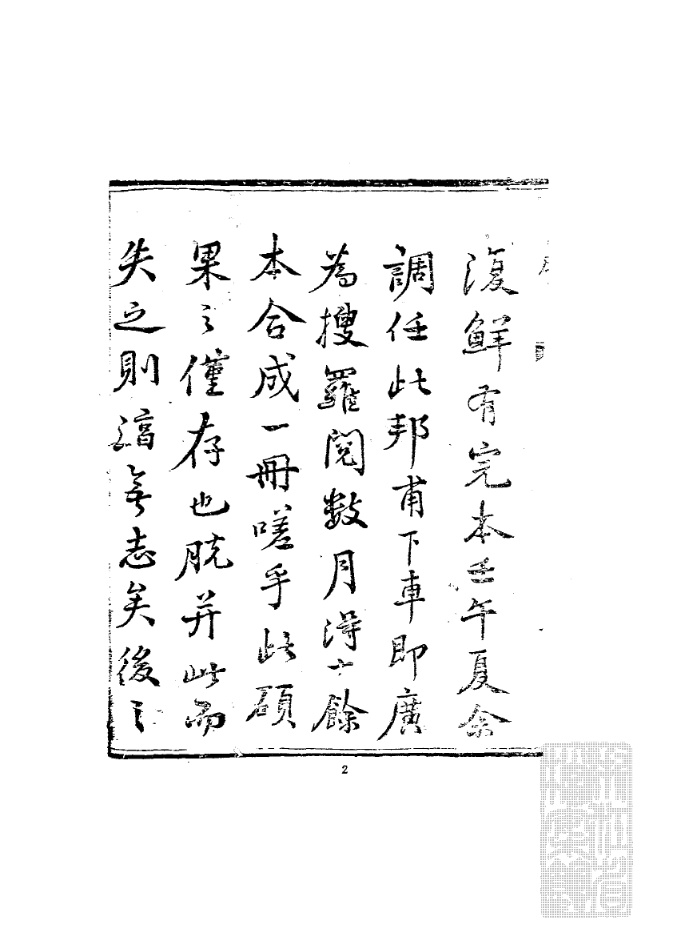 復鮮有完本壬午夏余
調任此邦甫下車即廣
為搜羅閱數月得十餘
本合成一冊嗟乎此碩
果之僅存也脫并此而
失之則滈無志矣後之
2